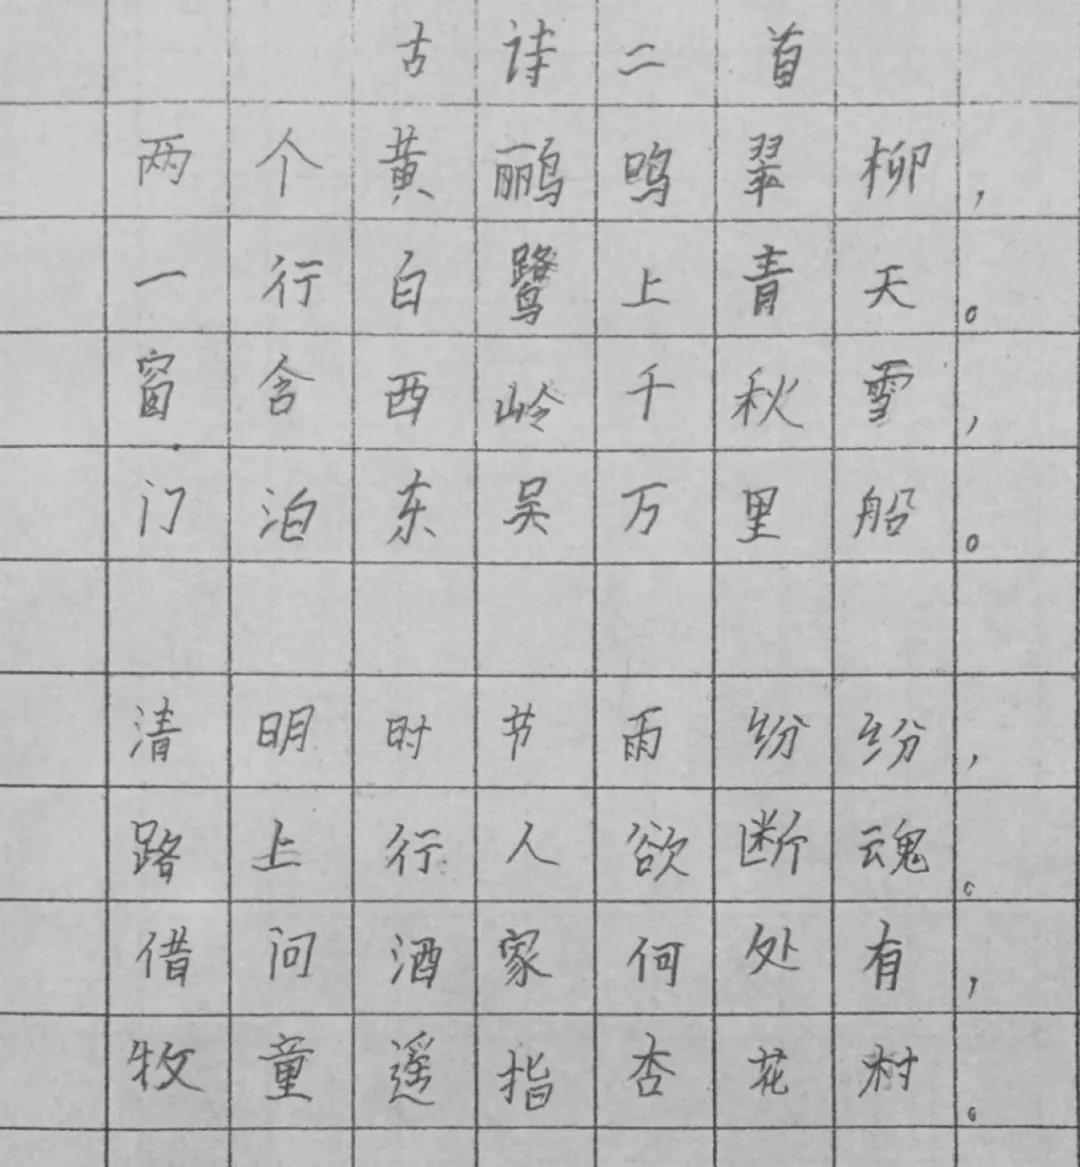 古诗二首
两个黄鹂鸣翠柳，
一行白鹭上青天。
窗含西岭千秋雪，
门泊东吴万里船。
清明时节雨纷纷，
路上行人欲断魂。
借问酒家何处有，
牧童遥指杏花村。